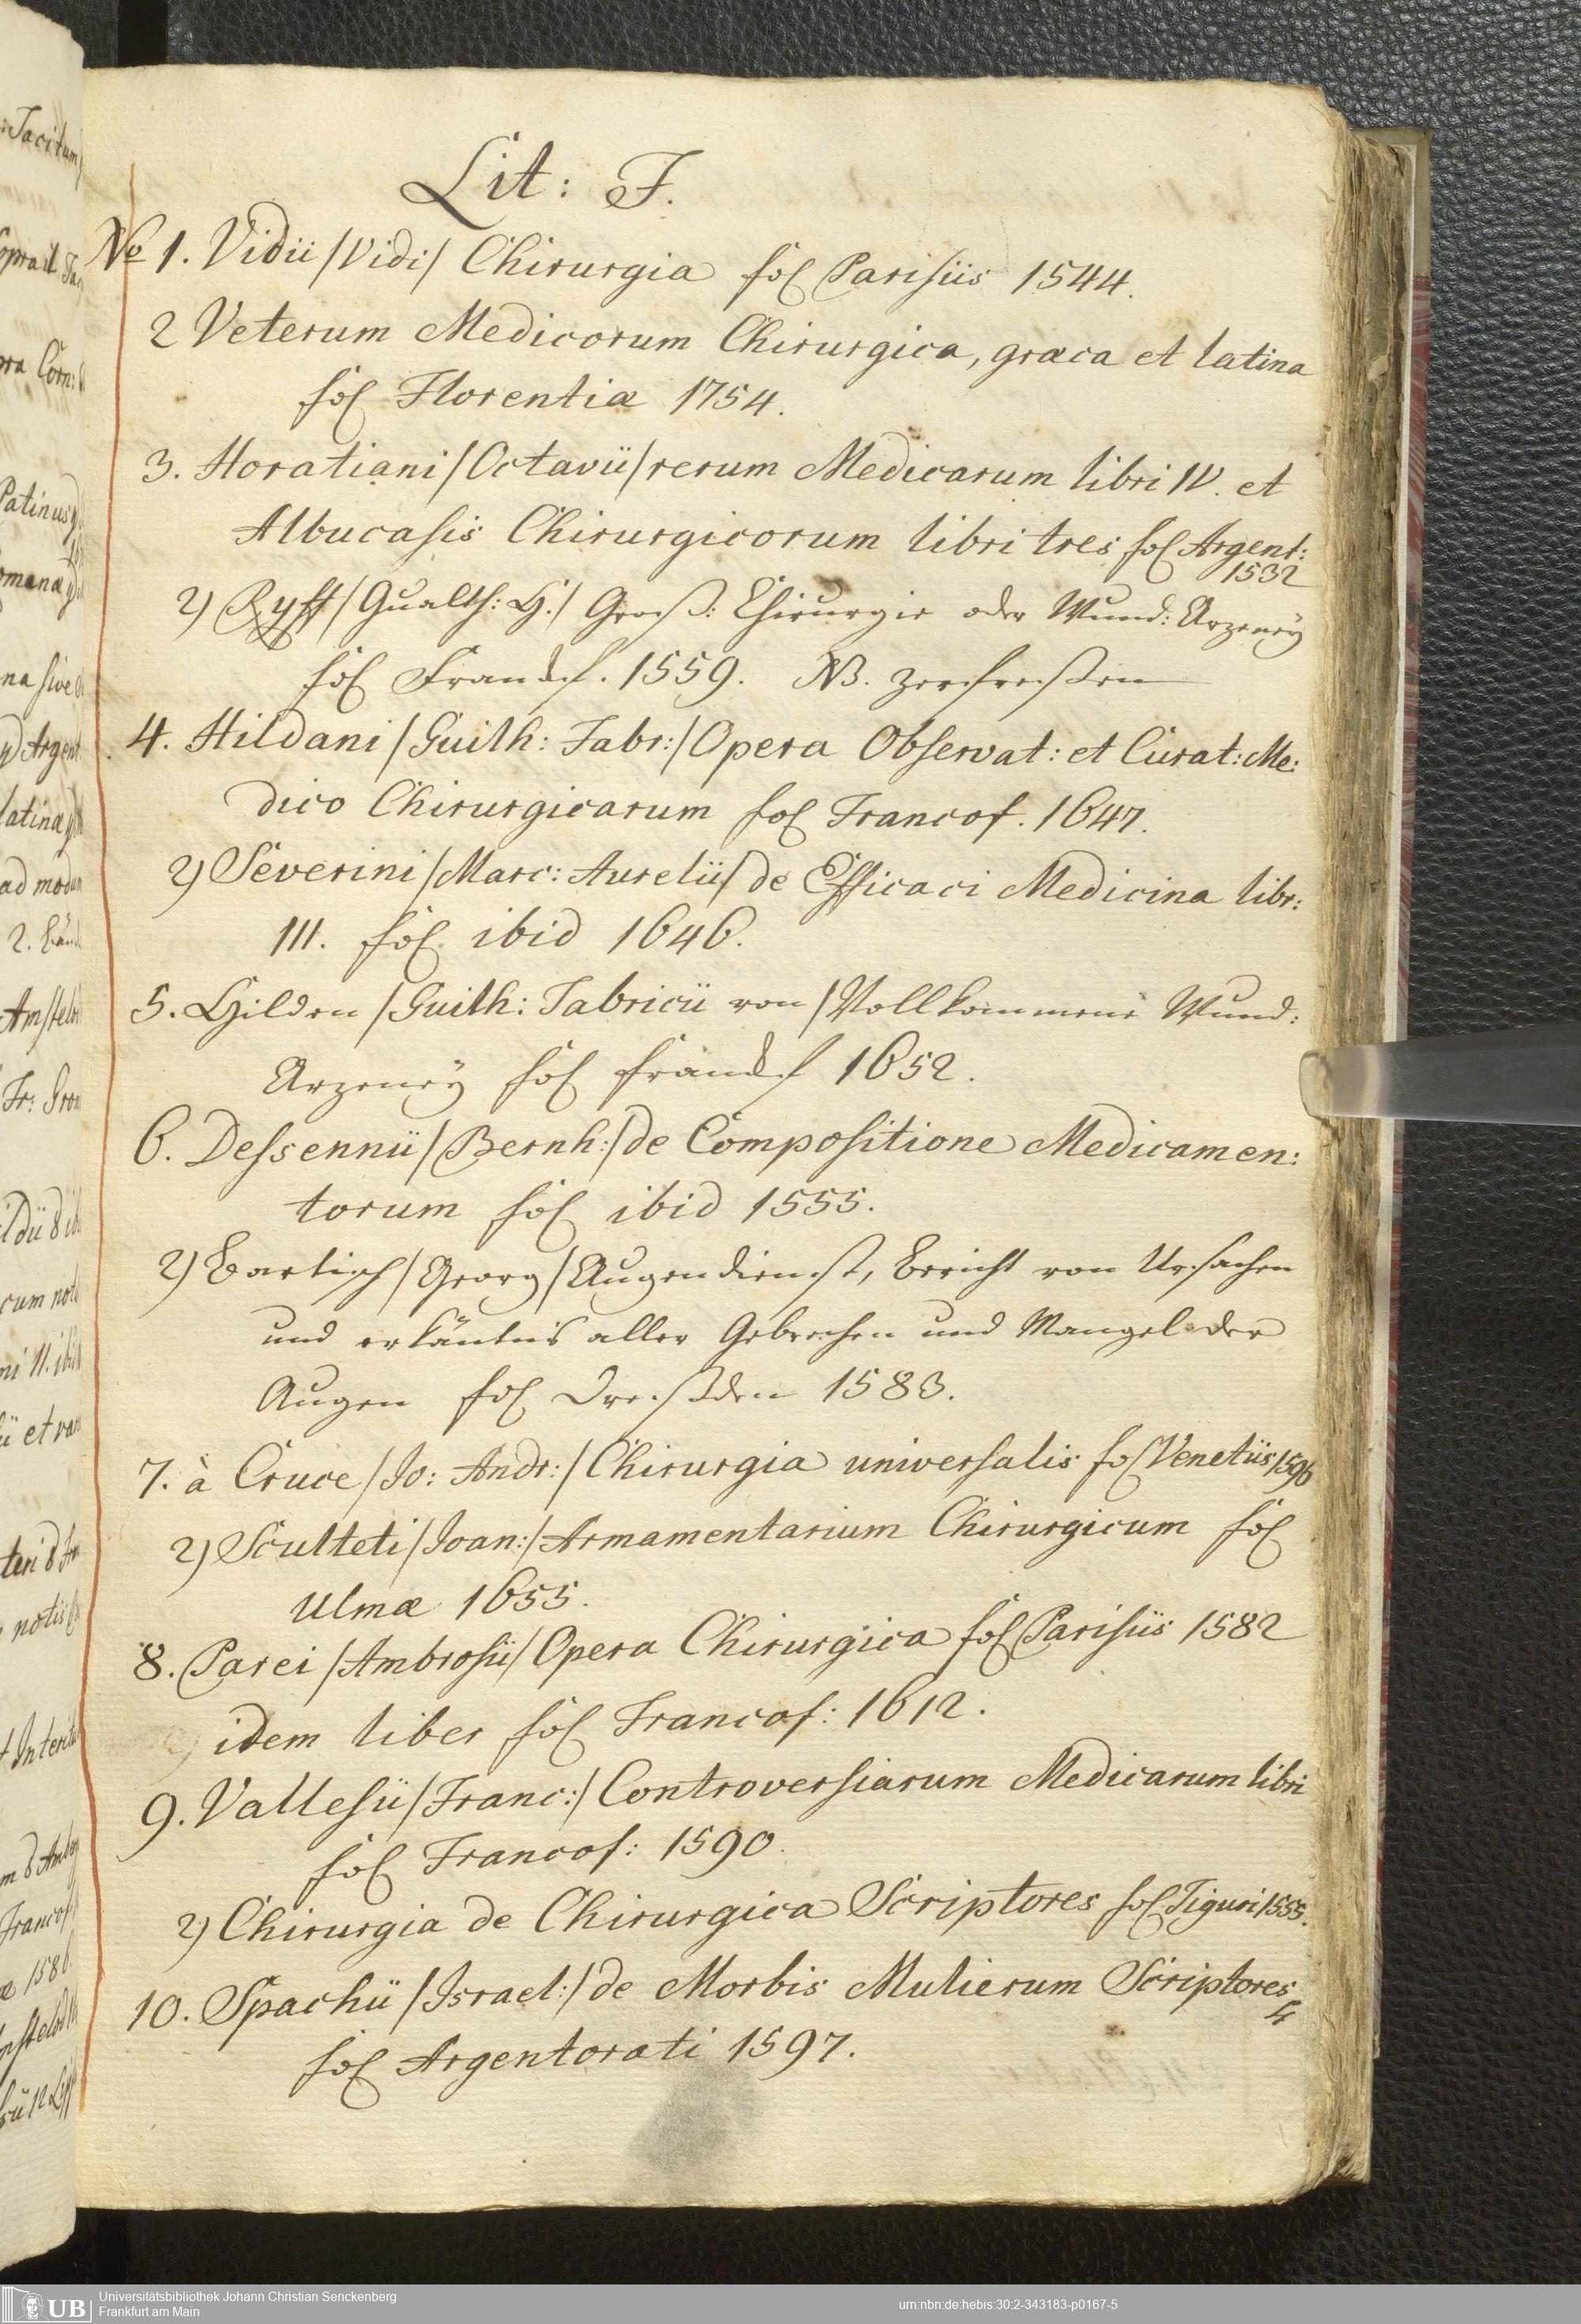 Lit: F.
No 1. Vidii /Vidi/ Chirurgia fol Parisiis 1544.
2 Veterum Medicorum Chirurgica, græca et latina
fol Florentiæ 1754.
3. Horatiani /Octavii/ rerum Medicarum libri IV. et
Albucasis Chirurgicorum libri tres fol Argent:
1532
2) Ryff /Gualth: H./ Groß: Chirurgie oder Wund: Arzeney
fol Franckf. 1559. NB. zerfreßen
4. Hildani /Guilh: Fabr:/ Opera Observat: et Curat: Me:
dico Chirurgicarum fol Francof. 1647.
2) Severini /Marc: Aurelii/ de Efficaci Medicina libr:
III. fol ibid 1646.
5. Hilden /Guilh: Fabricii von/ Vollkommene Wund:
Arzeney fol franckf 1652.
6. Dessennii /Bernh:/ de Compositione Medicamen:
torum fol ibid 1555.
2) Bartisch /Georg/ Augendienst, Bericht von Ursachen
und erkäntnis aller Gebrechen und Mangel der
Augen fol Dreßden 1583.
7. à Cruce /Jo: Andr:/ Chirurgia universalis fol Venetiis 1596
2) Sculteti /Joan:/ Armamentarium Chirurgicum fol
Ulmæ 1655.
8. Parei /Ambrosii/ Opera Chirurgica fol Parisiis 1582
idem liber fol Francof: 1612.
9. Vallesii /Franc:/ Controversiarum Medicarum libri
fol Francof: 1590.
2) Chirurgia de Chirurgica Scriptores fol. Tiguri 1555.
10. Spachii /Israel:/ de Morbis Mulierum Scriptores
fol Argentorati 1597.
UB Universitätsbibliothek Johann Christian Senckenberg
Frankfurt am Main
urn:nbn:de:hebis:30:2-343183-p0167-5